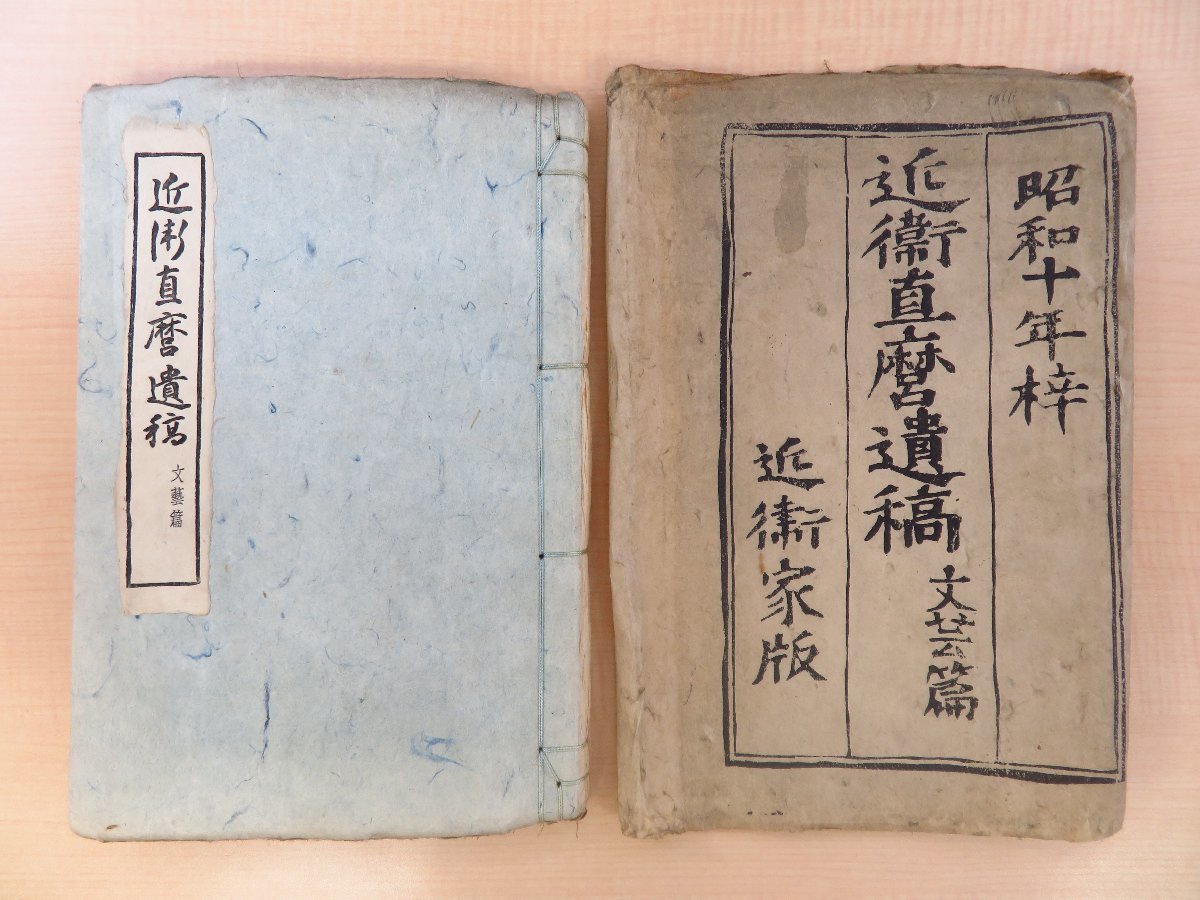 近衛直麿遺稿
文藝篇
昭和十年梓
近衞直麿遺稿 文芸篇
近衞家版